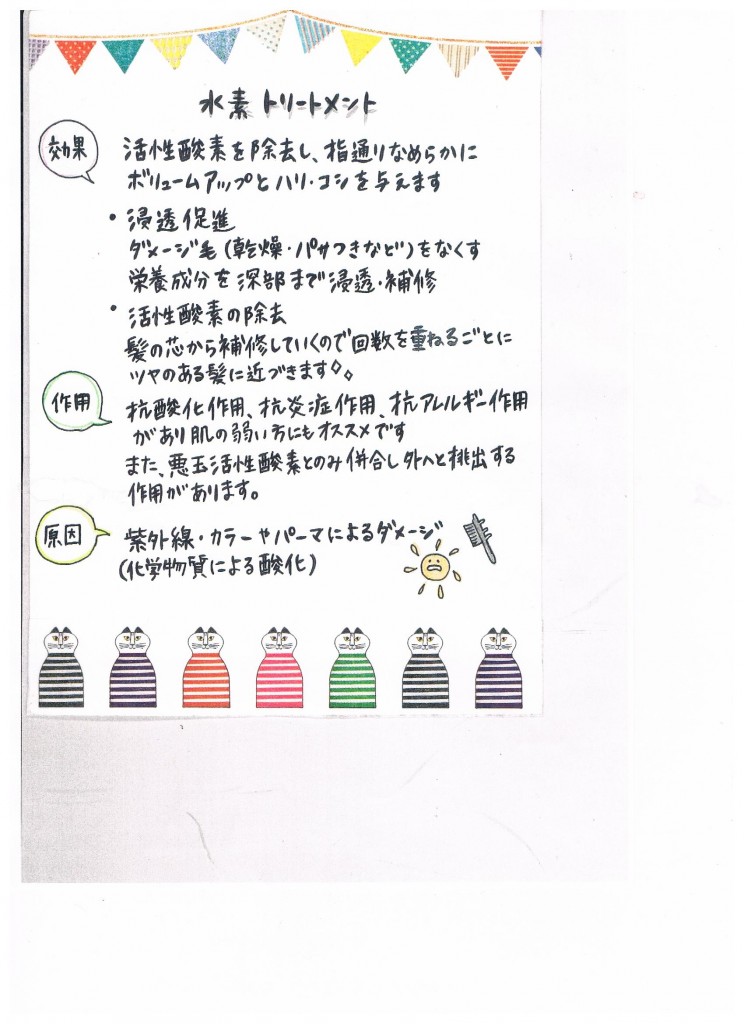 水素トリートメント
効果
活性酸素を除去し、指通りなめらかに
ボリュームアップとハリ・コシを与えます
・浸透促進
ダメージ毛(乾燥・パサつきなど)をなくす
栄養成分を深部まで浸透・補修
・活性酸素の除去
髪の芯から補修していくので回数を重ねるごとに
ツヤのある髪に近づきます。
作用
抗酸化作用、抗炎症作用、抗アレルギー作用
があり肌の弱い方にもオススメです
また、悪玉活性酸素とのみ併合し外へと排出する
作用があります。
原因
紫外線・カラーやパーマによるダメージ
(化学物質による酸化)